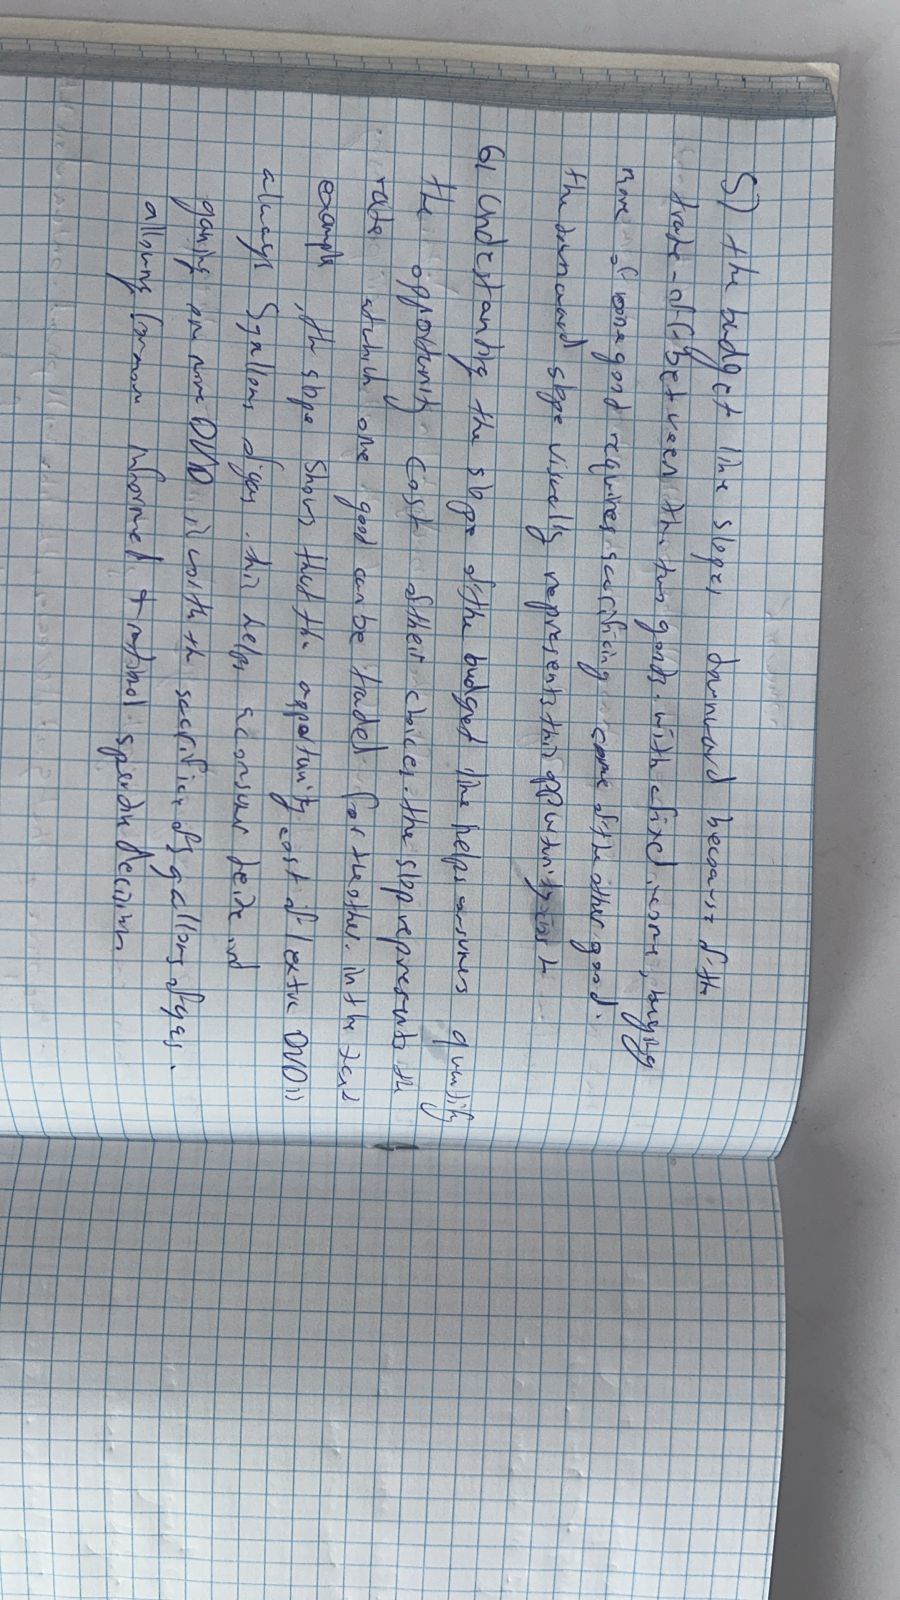 5) the budget line slopes downward because of the
trade-off between the two goods. with a fixed income, buying
more of one good requires sacrificing some of the other good.
the downward slope visually represents this opportunity cost
6) Understanding the slope of the budget line helps consumers quantify
the opportunity cost of their choices. the slop represents the
rate which one good can be traded for the other. in the
example, the slope shows that the opportunity cost of 1 extra DVD is
always 5 gallons of gas. this helps a consumer decide
gaining one more DVD is worth the sacrificing of 5 gallons of gas.
allowing for more informed + rational decision